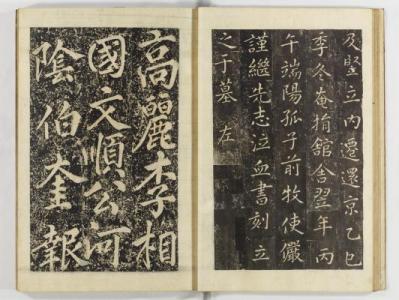 及竪立內遷還京乙巳
季冬奄捐舘舍翌年丙
午端陽孤子前牧使儼
謹繼先志泣血書刻立
之于墓左
高麗李相
國文順公河
陰伯奎報